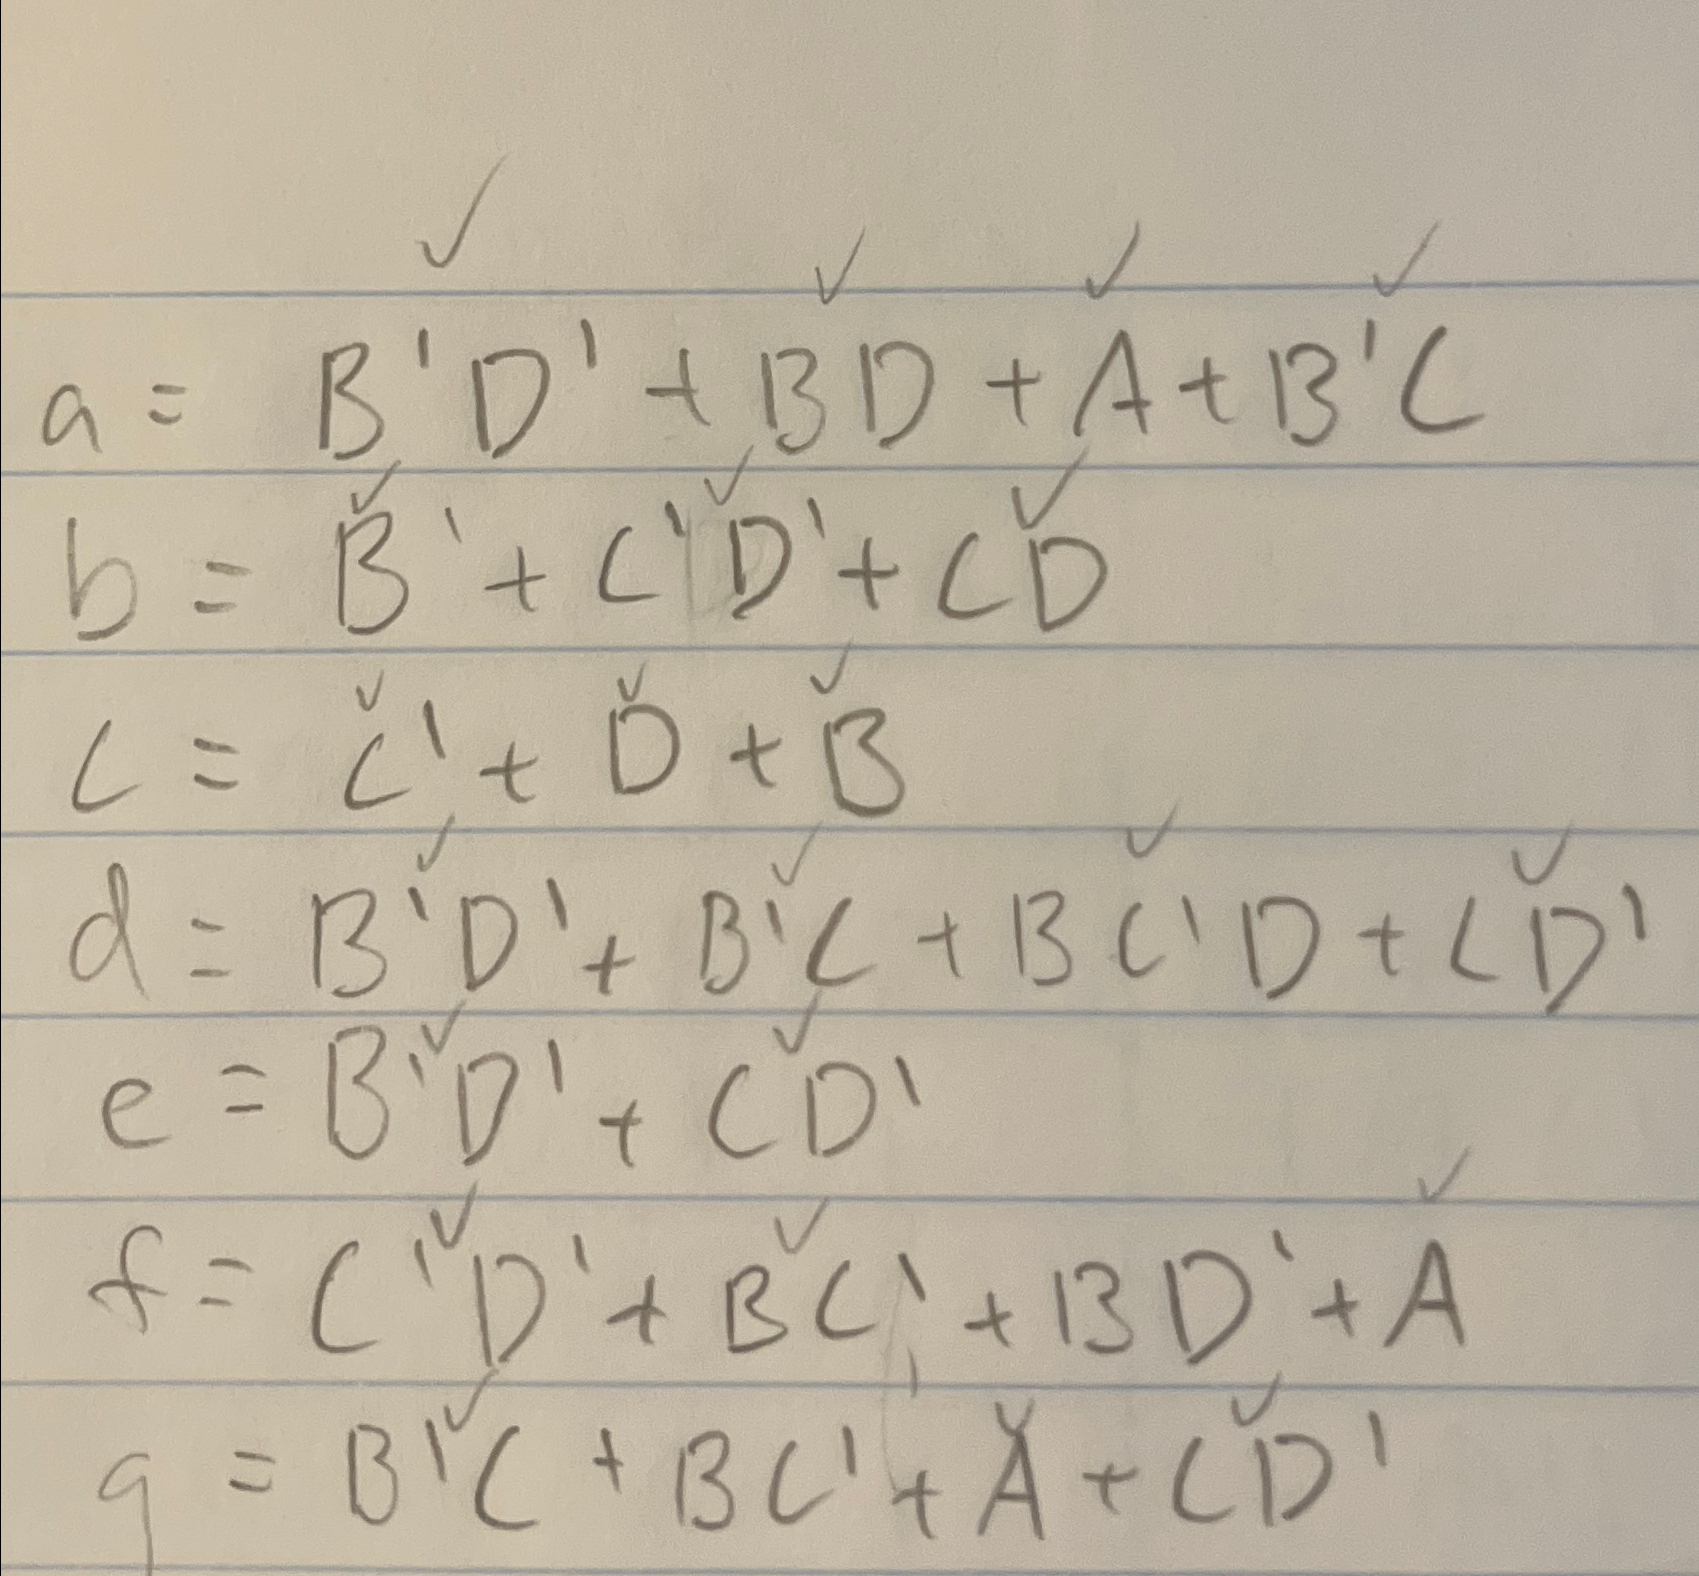 a = B'D' + BD + A + B'C
b = B' + C'D' + CD
c = C' + D + B
d = B'D' + B'C + BC'D + CD'
e = B'D' + CD'
f = C'D' + BC' + BD' + A
g = B'C + BC' + A + CD'